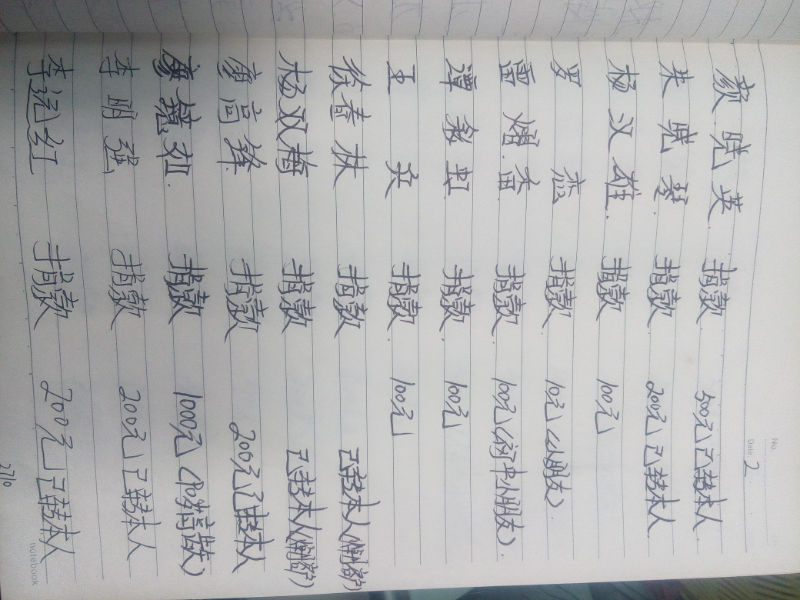 No.
Date 2
颜晓英 捐款 500元已转本人
朱晓琴 捐款 200元已转本人
杨汉雄 捐款 100元
罗恋 捐款 10元(小朋友)
雷 香 捐款 100元( 小朋友)
谭 虹 捐款 100元
王 英 捐款 100元
徐春林 捐款 已转本人(谢 )
杨双梅 捐款 已转本人(谢 )
廖高锋 捐款 200元已转本人
廖 捐款 1000元( 捐款)
李明强 捐款 200元已转本人
李远红 捐款 200元已转本人
2710
notebook